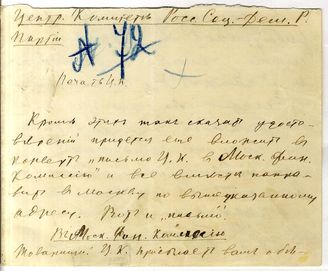 Центр. Комитетъ Росс. Соц.-Дем. Р.
Партіи
№ 72
Печать Ц.К
Кромѣ этихъ такъ сказать удосто-
вѣреній придется еще вложить въ
конвертъ „письмо Ц. К. въ Моск. Фин.
Комиссію" и все вмѣстѣ напра-
вить в Москву по вышеуказанному
адресу. Вотъ и „письмо".
Въ Моск. Фин. Комиссію
Товарищи! Ц. К. присылаетъ вамъ